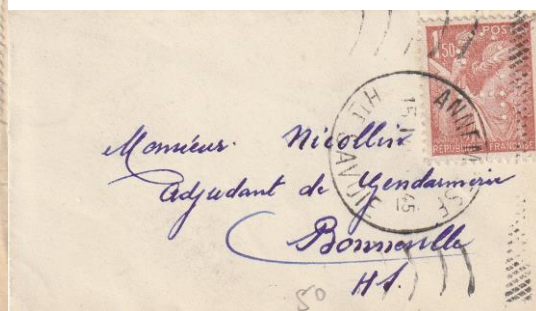 1F50 POSTES
RÉPUBLIQUE FRANÇAISE
ANNEMASSE
15 IV 45
HTE SAVOIE
Monsieur. Nicollin
Adjudant de Gendarmerie
Bonneville
H.S.
50